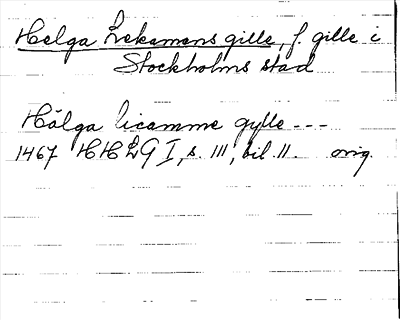 Helga Lekamens gille, f. gille i
Stockholms stad
Hälga licamme gylle ---
1467 HHLG I, s. 111, bil. 11. orig.